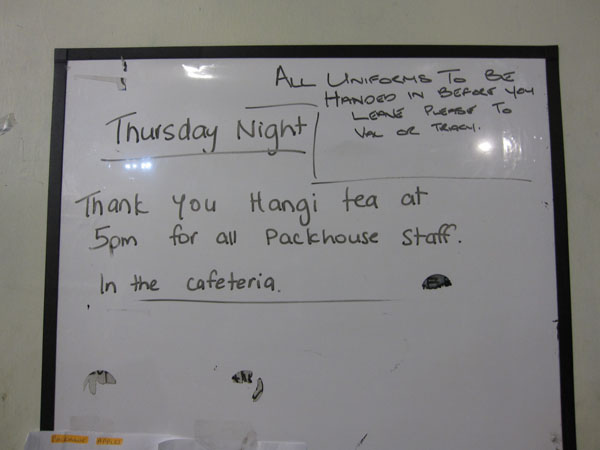 ALL UNIFORMS TO BE
HANDED IN BEFORE YOU
LEAVE PLEASE TO
VAL OR TRACY.
Thursday Night
Thank you Hangi tea at
5pm for all Packhouse staff.
In the cafeteria.
PACKHOUSE